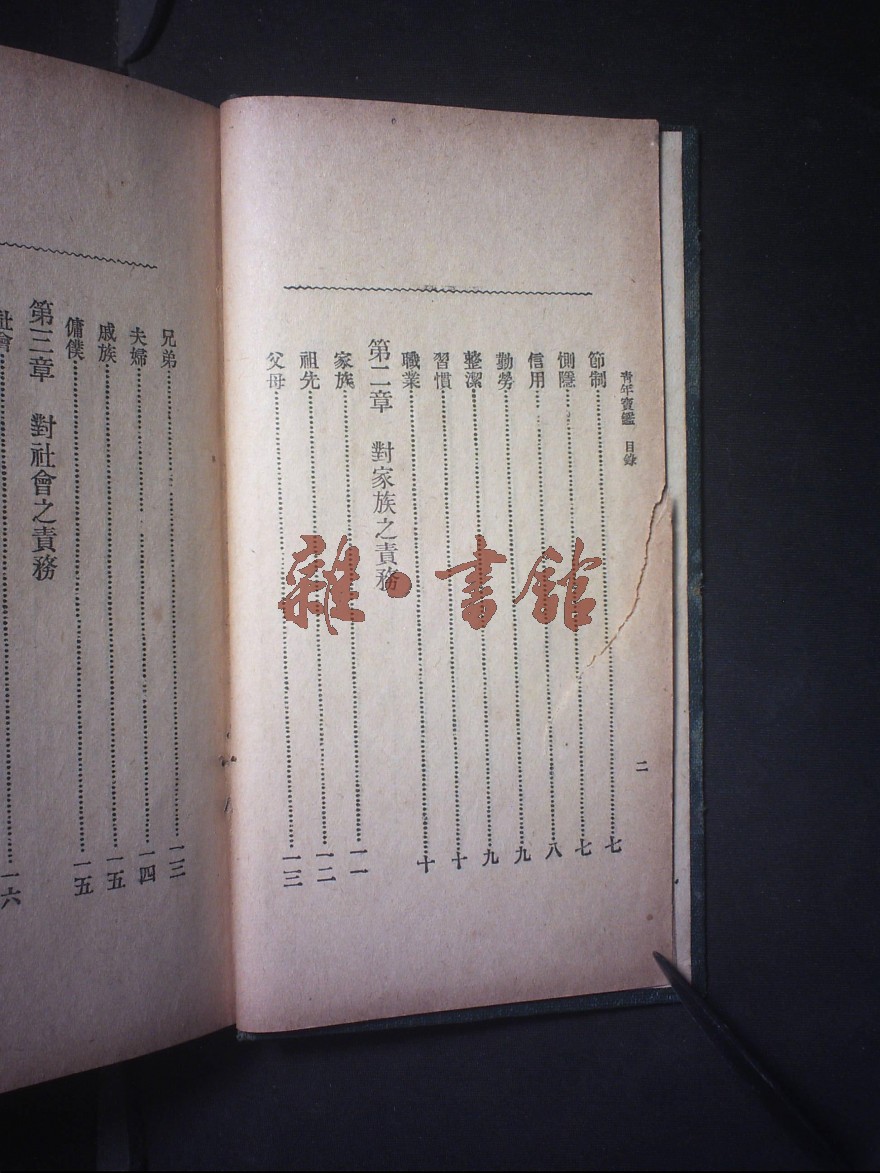 青年寶鑑 目錄
二
節制 七
惻隱 七
信用 八
勤勞 九
整潔 九
習慣 十
職業 十
第二章 對家族之責務
家族 一一
祖先 一二
父母 一三
兄弟 一三
夫婦 一四
戚族 一五
傭僕 一五
第三章 對社會之責務
社會 一六
雜·書館